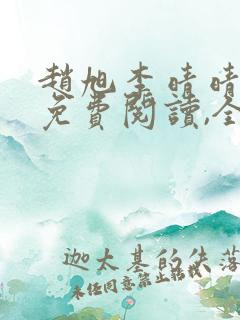 趙旭李晴晴
免費閱讀,全
迦太基的失落
未经同意禁止转载